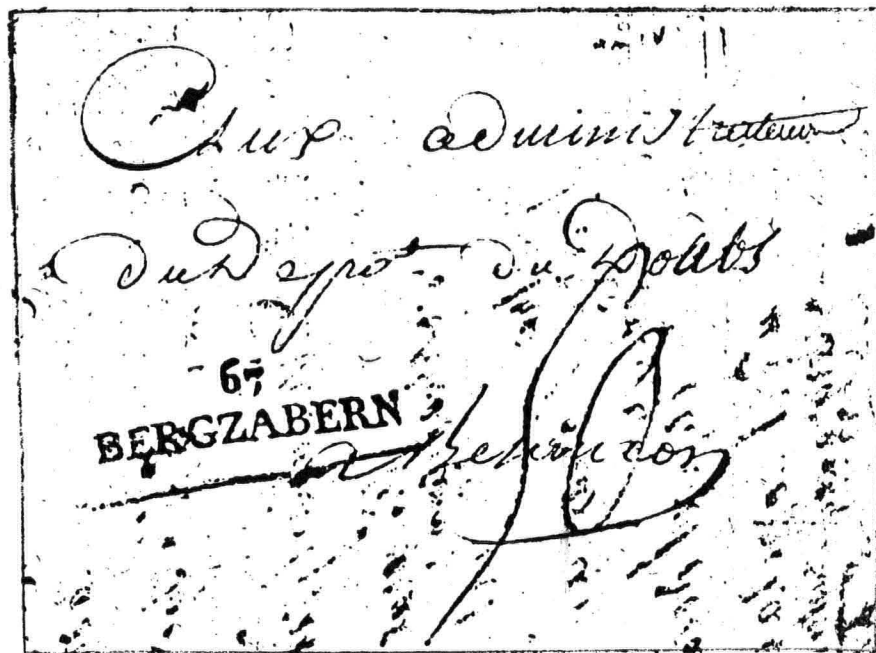 an IV
Aux administrateurs
du Depot du Doubs
67
BERGZABERN
a Besancon